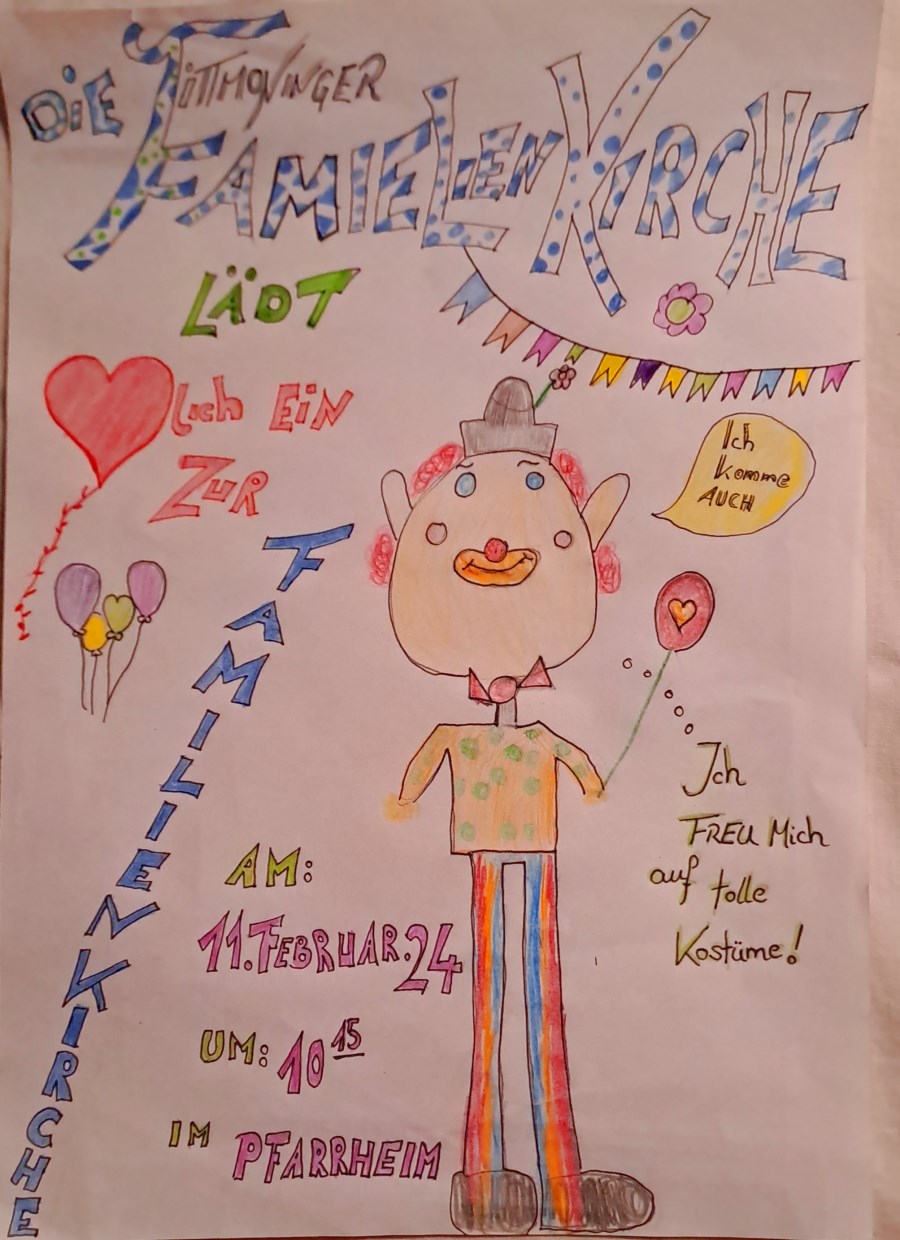 DiE TITTMONINGER
FAMIELIEN KIRCHE
LÄDT
lich EiN
ZUR
FAMILIENKIRCHE
Ich
komme
AUCH
Ich
FREU Mich
auf tolle
Kostüme!
AM:
11. FEBRUAR. 24
UM: 10 15
IM PFARRHEIM